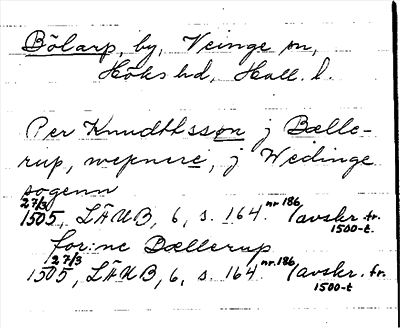 Bölarp, by, Veinge sn,
Höks hd, Hall. l.
Per Knudtssonn j Bælle-
rup, wepnere, j Wedinge
sogenn
27/3 1505, LÄUB, 6, s. 164 nr 186 (avskr. fr. 1500-t.
for:ne Bællerup
27/3 1505, LÄUB, 6, s. 164 nr 186 (avskr. fr. 1500-t.